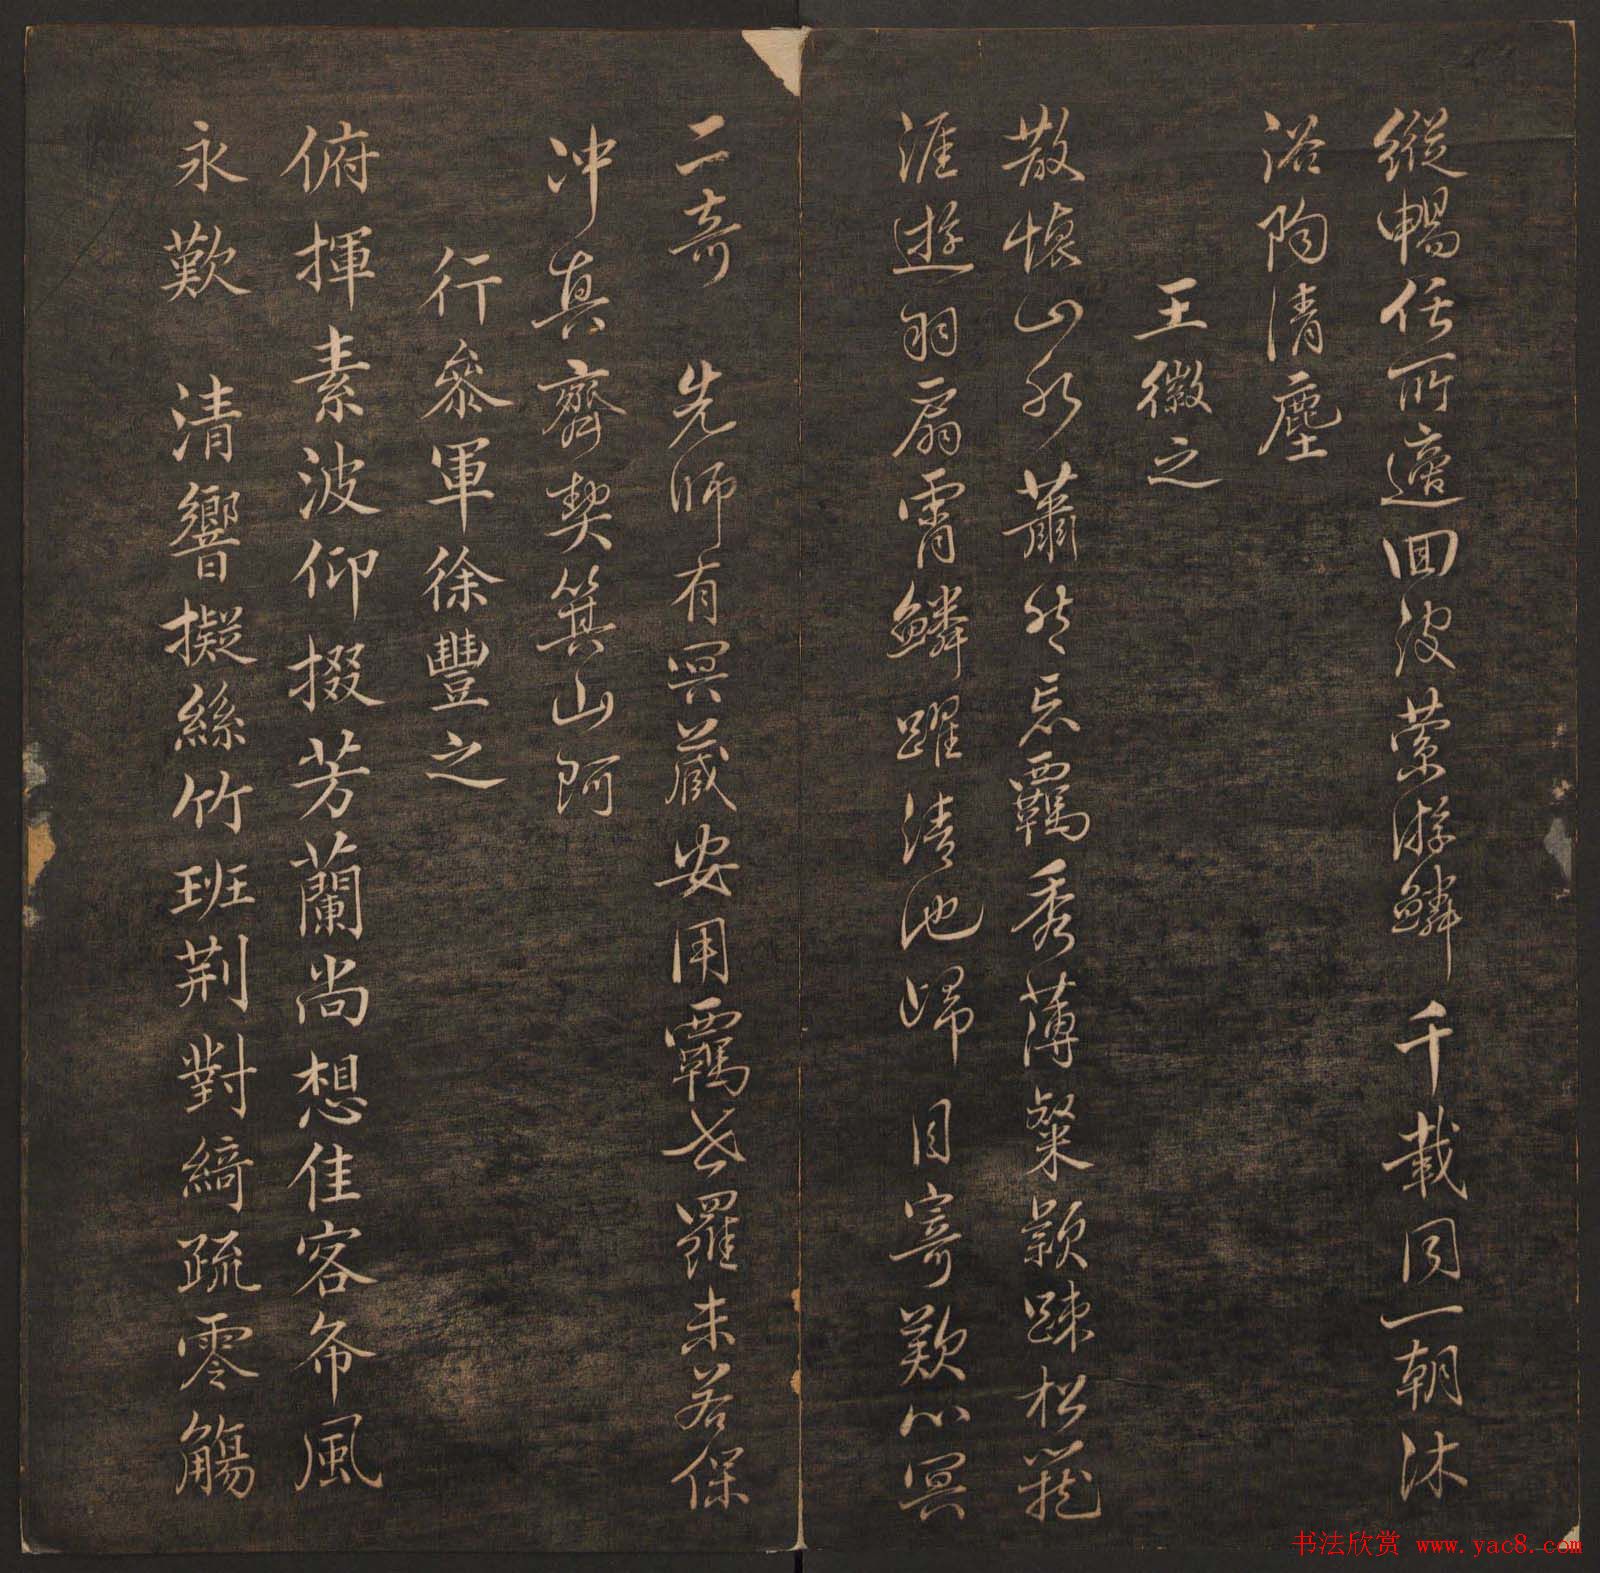 縱暢任所適回波縈游鱗千載同一朝沐
浴陶清塵
王徽之
散懷山水蕭然忘羈秀薄粲穎疎松籠
涯遊羽扇霄鱗躍清池歸目寄歎心冥
二奇先師有冥藏安用羈世羅未若保
冲真齊契箕山阿
行參軍徐豐之
俯揮素波仰掇芳蘭尚想佳客希風
永歎清響擬絲竹班荆對綺疏零觴
书法欣赏 www.yac8.com